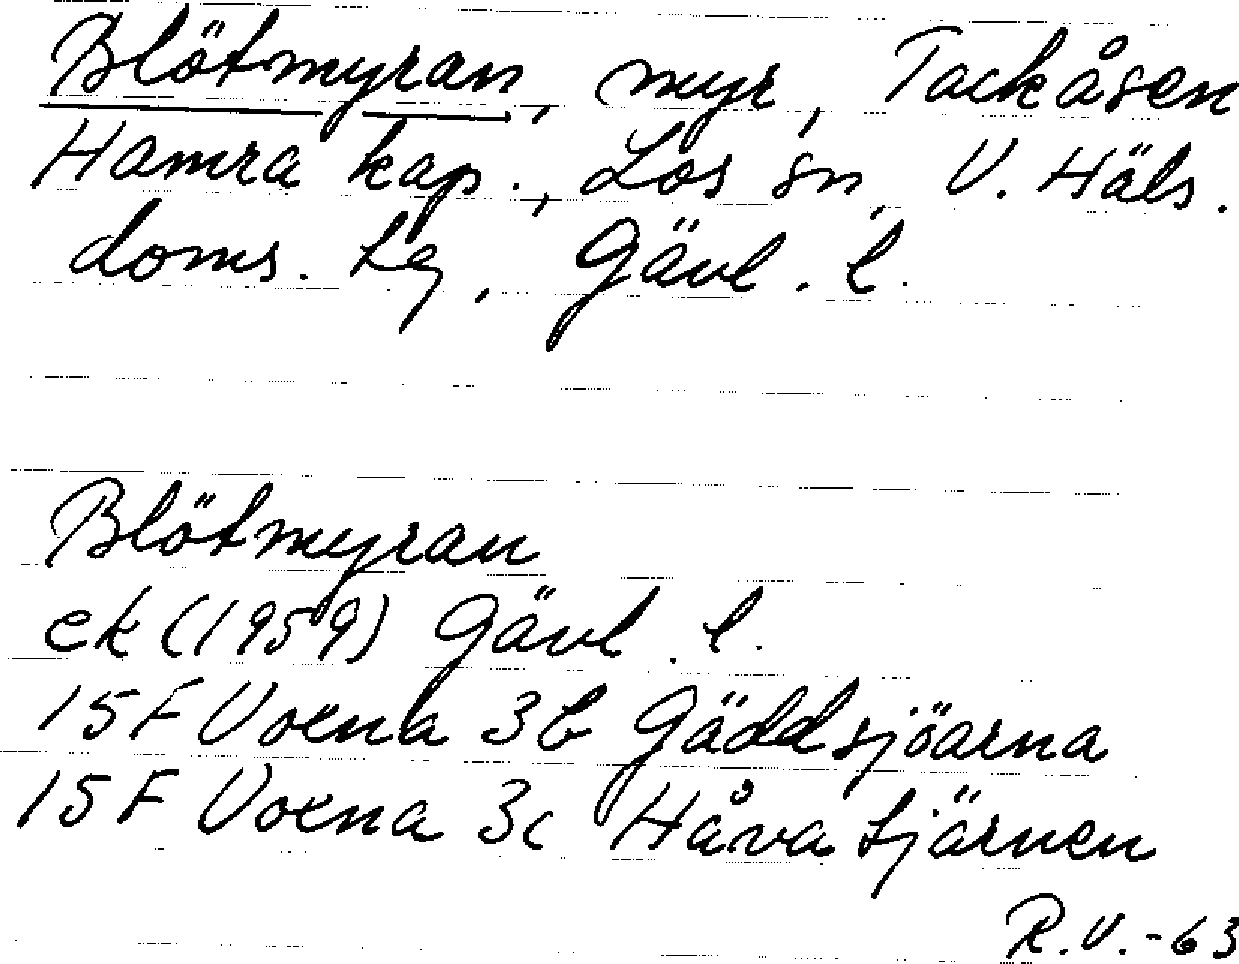 Blötmyran, myr, Tackåsen
Hamra kap., Los sn, V. Häls.
doms. tg, Gävl. l.
Blötmyran
ek (1959) Gävl. l.
15F Voxna 3b Gäddsjöarna
15F Voxna 3c Håvatjärnen
R.V.-63